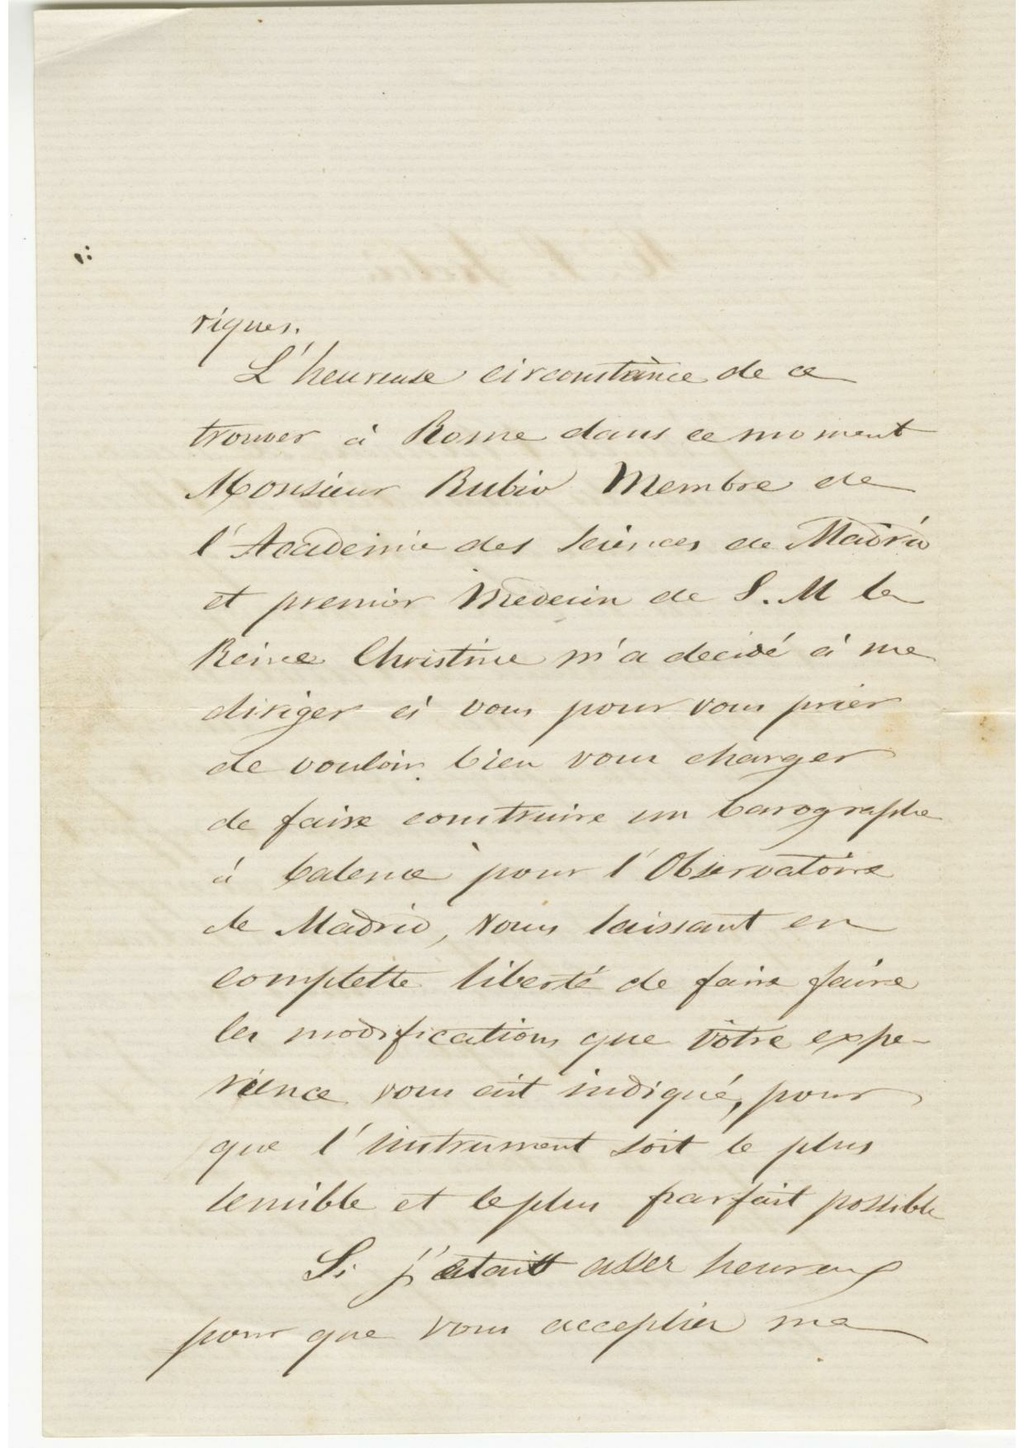 riques.
L'heureuse circonstance de ce
trouver à Rome dans ce moment
Monsieur Rubio Membre de
l'Academie des Sciences de Madrid
et premier Medecin de S. M la
Reine Christine m'a decidé à me
diriger à vous pour vous prier
de vouloir bien vous charger
de faire construire un barographe
à balence pour l'Observatoire
de Madrid, vous laissant en
complette liberté de faire faire
les modifications que vôtre expe-
rience vous eut indiqué, pour
que l'instrument soit le plus
sensible et le plus parfait possible
Si j'etait assez heureux
pour que vous acceptiez ma